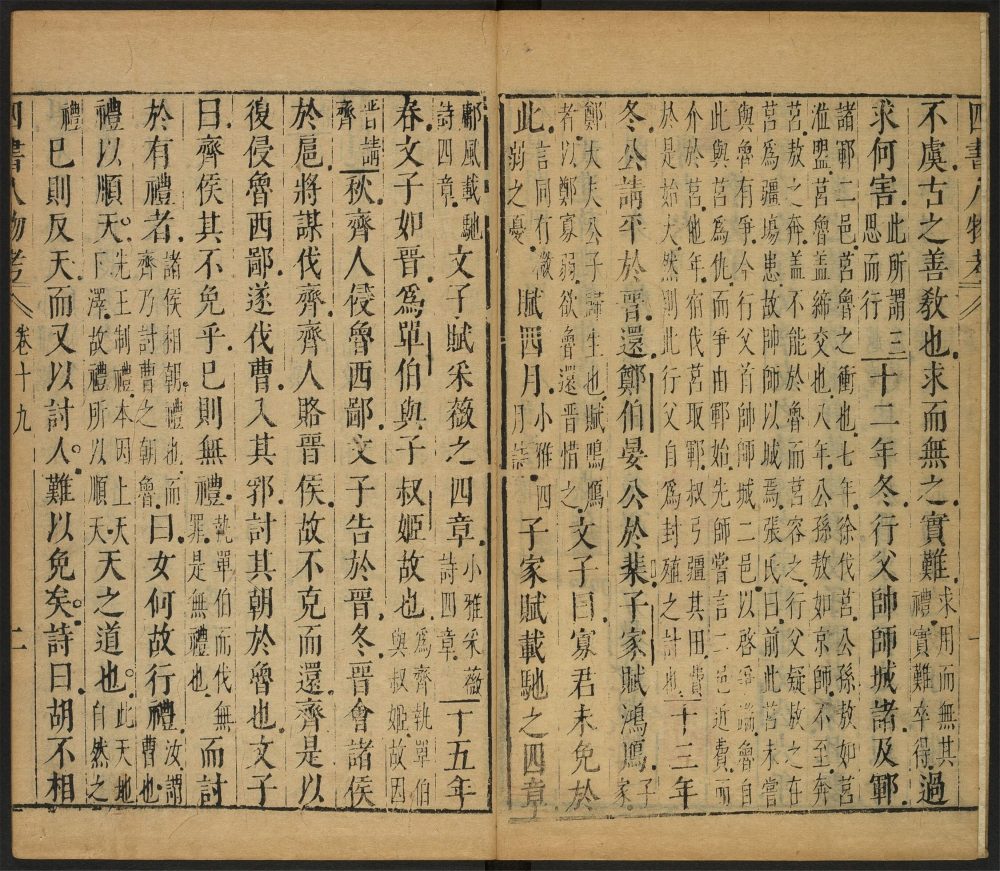 不虞古之善教也求而無之實難求用而無其禮實難卒得過
求何害此所謂三思而行三十二年冬行父帥師城諸及鄆
諸鄆二邑莒魯之衝也七年徐伐莒公孫敖如莒
涖盟莒魯盖締交也八年公孫敖如京師不至奔
莒敖之奔盖不能於魯而莒容之行父疑敖之在
莒爲疆場患故帥師以城焉張氏曰前此莒未嘗
與魯有爭今行父首帥師城二邑以啓爭端魯自
此與莒爲仇而爭由鄆始先師嘗言二邑近費而
介於莒他年宿伐莒取鄆叔弓疆其田費
於是始大然則此行父自爲封殖之計也十三年
冬公請平於晉還鄭伯宴公於棐子家賦鴻鴈子家
鄭大夫公子歸生也賦鴻鴈者以鄭寡弱欲魯還晉惜之文子曰寡君未免於
此言同有微弱之憂賦四月小雅四月詩子家賦載馳之四章
鄘風載馳詩四章文子賦采薇之四章小雅采薇詩四章十五年
春文子如晉爲單伯與子叔姬故也爲齊執單伯與叔姬故因
晉請齊秋齊人侵魯西鄙文子告於晉冬晉會諸侯
於扈將謀伐齊齊人賂晉侯故不克而還齊是以
復侵魯西鄙遂伐曹入其郛討其朝於魯也文子
曰齊侯其不免乎已則無禮執單伯而伐無罪是無禮也而討
於有禮者諸侯相朝禮也而齊乃討曹之朝魯曰女何故行禮汝謂曹也
禮以順天先王制禮本因上天下澤故禮所以順天天之道也此天地自然之
禮已則反天而又以討人難以免矣詩曰胡不相
四書人物考 卷十九 二